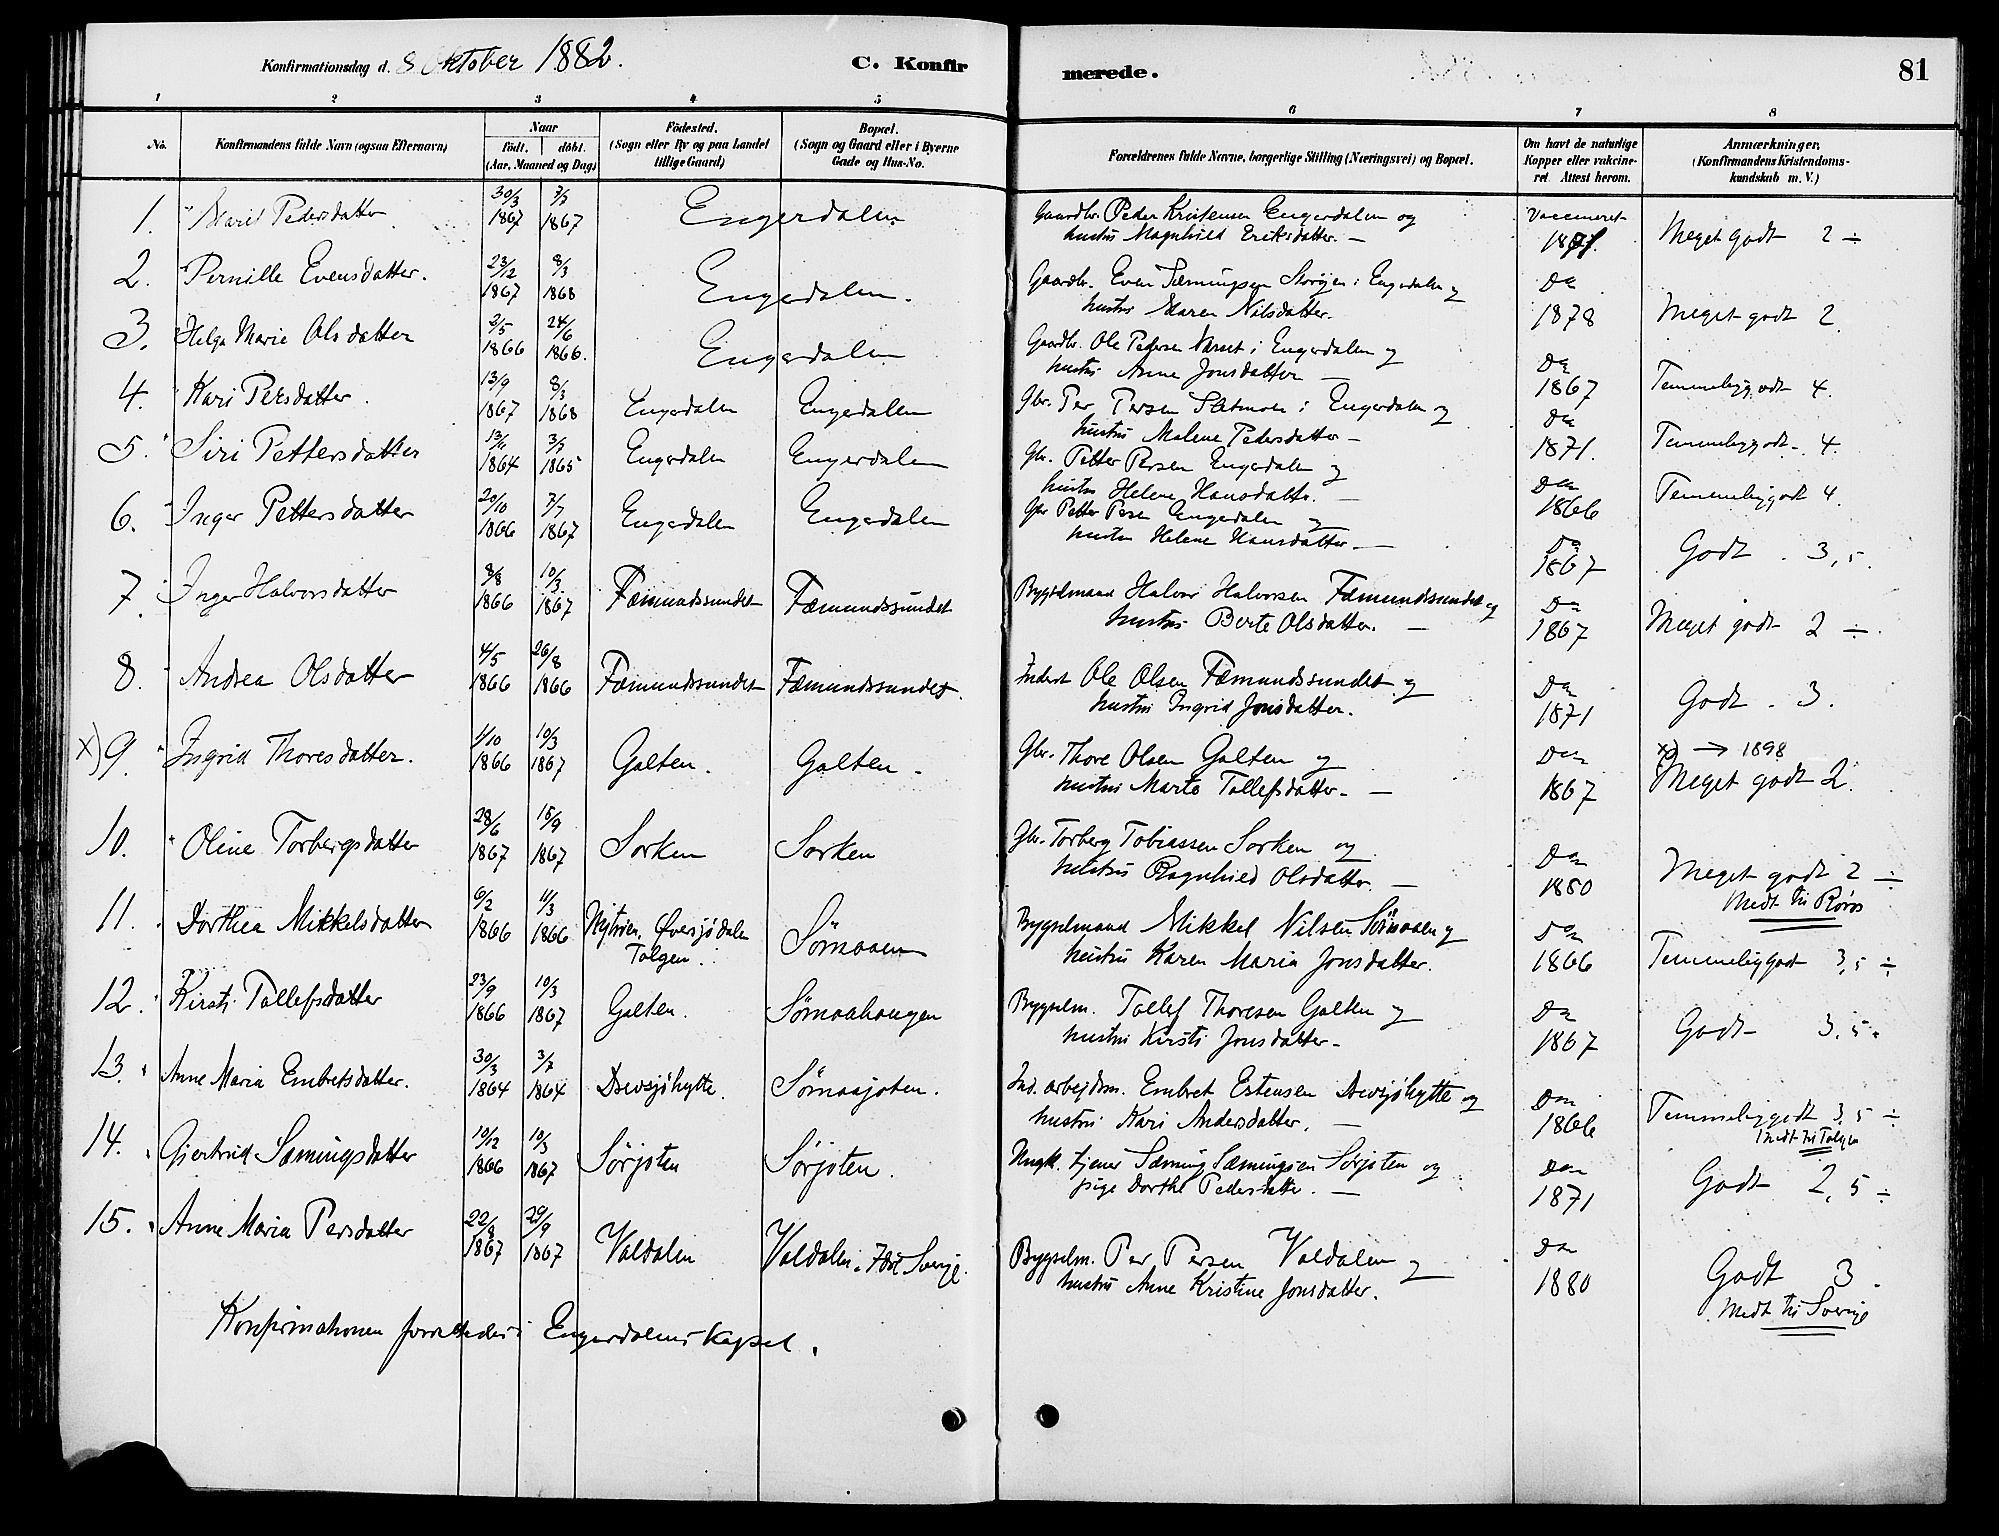 Konfirmationsdag d. 8 Oktober 1882. C. Konfirmerede. 81
1 2 3 4 5 6 7 8
No. Konfirmandens fulde Navn (ogsaa Efternavn) Naar födt. döbt. (Aar, Maaned og Dag) Födested. (Sogn eller By og paa Landet tillige Gaard) Bopæl. (Sogn og Gaard eller i Byerne Gade og Hus-No. Forældrenes fulde Navne, borgerlige Stilling (Næringsvei) og Bopæl. Om havt de naturlige Kopper eller vakcineret. Attest herom. Anmærkninger. (Konfirmandens Kristendomskundskab m. V.)
1. Marit Pedersdatter 30/3 1867 7/7 1867 Engerdalen Gaardbr. Peder Kristensen Engerdalen og
hustru Magnhild Eriksdatter. — Vaccineret 1871. Meget godt 2 ÷
2. Pernille Evensdatter. 23/12 1867 8/3 1868 Engerdalen. Gaardbr. Even Sæmingsen i Engerdalen og
hustru Maren Nilsdatter. Do 1878 Meget godt 2.
3. Helga Marie Olsdatter 2/5 1866 24/6 1866. Engerdalen Gaardbr. Ole Pedersen i Engerdalen og
hustru Anne Jonsdatter — Do 1867 Temmelig godt 4.
4. Kari Persdatter. 13/9 1867 8/3 1868 Engerdalen Engerdalen Gbr. Per Persen i Engerdalen og
hustru Malene Pedersdatter — Do 1871. Temmelig godt 4.
5. Siri Pettersdatter 1864 3/7 1865 Engerdalen Engerdalen Gbr. Petter Persen Engerdalen og
hustru Helene Hansdatter. — Do 1866 Temmelig godt 4.
6. Inger Pettersdatter 20/10 1866 7/7 1867 Engerdalen Engerdalen Gbr Petter Persen Engerdalen og
hustru Helene Hansdatter — Do 1867 Godt. 3,5.
7. Inger Halvorsdatter 8/8 1866 10/3 1867 Fæmundssundet Fæmundssundet Bygselmand Halvor Halvorsen Fæmundssundet og
hustru Berte Olsdatter. — Do 1867 Meget godt 2 ÷.
8. Andrea Olsdatter 4/5 1866 26/8 1866 Fæmundssundet Fæmundssundet. Inderst Ole Olsen Fæmundssundet og
hustru Ingrid Jonsdatter. Do 1871 Godt. 3.
x) 9. Ingrid Thoresdatter. 1/10 1866 10/3 1867 Galten. Galten. Gbr. Thore Olsen Galten og
hustru Marte Tollefsdatter — Do 1867 x) → 1898
Meget godt 2.
10. Oline Torbergsdatter 28/6 1867 15/9 1867 Sorken Sorken Gbr. Torberg Tobiassen Sorken og
hustru Ragnhild Olsdatter. — Do 1880 Meget godt 2 ÷
Medt til Røros
11. Dorthea Mikkelsdatter 6/2 1866 11/3 1866 Øversjødalen Tolgen. Sømoaen Bygselmand Mikkel Nilsen Sømoaen og
hustru Karen Maria Jonsdatter. Do 1866 Temmelig godt 3,5 ÷
12. Kirsti Tollefsdatter 23/9 1866 10/3 1867 Galten. Sømoahaugen Bygselm. Tollef Thoresen Galten og
hustru Kirsti Jonsdatter — Do 1867 Godt 3,5.
13. Anne Maria Embretsdatter. 30/3 1864 3/7 1864 Drevsjøhytte. Sømoajoten. Ind. arbejdsm. Embret Estensen Drevsjøhytte og
hustru Kari Andersdatter. — Do 1866 Temmelig godt 3,5 ÷
Medt til Tolgen
14. Gjertrud Sæmingsdatter 10/12 1866 10/3 1867 Sørjoten Sørjoten. Ungk. tjener Sæming Sæmingsen Sørjoten og
pige Dorthe Pedersdatter. — Do 1871 Godt 2,5 ÷
15. Anne Maria Persdatter 22/8 1867 29/9 1867 Valdalen Valdalen. Idre Sverige. Bygselm. Per Persen Valdalen og
hustru Anne Kristine Jonsdatter. Do 1880 Godt 3.
Medt til Sverige
Konfirmationen forrettedes i Engerdalens Kapel.